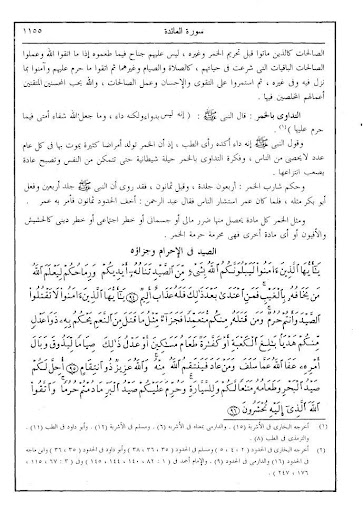 سورة المائدة ١١٥٥
الصالحات كالذين ماتوا قبل تحريم الخمر وغيره ، ليس عليهم جناح فيما طعموه إذا ما اتقوا الله وعملوا
الصالحات الباقيات التى شرعت فى حياتهم ، كالصلاة والصيام وغيرهما ثم اتقوا ما حرم عليهم وآمنوا بما
نزل فيه وفى غيره ، ثم استمروا على التقوى والإحسان وعمل الصالحات ، والله يحب المحسنين المتقنين
أعمالهم المخلصين فيها .
التداوى بالخمر : قال النبى ﷺ : ( إنه ليس بدواء ولكنه داء ، وما جعل الله شفاء أمتى فيما
حرم عليها )(١) .
وقول النبى ﷺ إنه داء أكده رأى الطب ، إذ أن الخمر تولد أمراضا كثيرة يموت بها فى كل عام
عدد لا يحصى من الناس ، وفكرة التداوى بالخمر حيلة شيطانية حتى تتمكن من النفس وتصبح عادة
يصعب انتزاعها .
وحكم شارب الخمر : أربعون جلدة ، وقيل ثمانون ، فقد روى أن النبى ﷺ جلد أربعين وفعل
أبو بكر مثله ، فلما كان عمر استشار الناس فقال عبد الرحمن : أخف الحدود ثمانون فأمر به عمر .
ومثل الخمر كل مادة يحصل منها ضرر مالى أو جسمانى أو خطر اجتماعى أو خطر دينى كالحشيش
والأفيون أو أى مادة أخرى فهى محرمة حرمة الخمر .
الصيد فى الإحرام وجزاؤه
يَٰٓأَيُّهَا الَّذِينَ ءَامَنُوا لَيَبْلُوَنَّكُمُ اللَّهُ بِشَيْءٍ مِّنَ الصَّيْدِ تَنَالُهُۥٓ أَيْدِيكُمْ وَرِمَاحُكُمْ لِيَعْلَمَ اللَّهُ
مَن يَخَافُهُۥ بِالْغَيْبِ فَمَنِ اعْتَدَىٰ بَعْدَ ذَٰلِكَ فَلَهُۥ عَذَابٌ أَلِيمٌ ﴿٩٤﴾ يَٰٓأَيُّهَا الَّذِينَ ءَامَنُوا لَا تَقْتُلُوا
الصَّيْدَ وَأَنتُمْ حُرُمٌ وَمَن قَتَلَهُۥ مِنكُم مُّتَعَمِّدًا فَجَزَآءٌ مِّثْلُ مَا قَتَلَ مِنَ النَّعَمِ يَحْكُمُ بِهِۦ ذَوَا عَدْلٍ
مِّنكُمْ هَدْيًا بَٰلِغَ الْكَعْبَةِ أَوْ كَفَّٰرَةٌ طَعَامُ مَسَٰكِينَ أَوْ عَدْلُ ذَٰلِكَ صِيَامًا لِّيَذُوقَ وَبَالَ
أَمْرِهِۦ عَفَا اللَّهُ عَمَّا سَلَفَ وَمَنْ عَادَ فَيَنتَقِمُ اللَّهُ مِنْهُ وَاللَّهُ عَزِيزٌ ذُو انتِقَامٍ ﴿٩٥﴾ أُحِلَّ لَكُمْ
صَيْدُ الْبَحْرِ وَطَعَامُهُۥ مَتَٰعًا لَّكُمْ وَلِلسَّيَّارَةِ وَحُرِّمَ عَلَيْكُمْ صَيْدُ الْبَرِّ مَا دُمْتُمْ حُرُمًا وَاتَّقُوا
اللَّهَ الَّذِىٓ إِلَيْهِ تُحْشَرُونَ ﴿٩٦﴾
(١) أخرجه البخارى فى الأشربة (١٥) ، والدارمى بمعناه فى الأشربة (٦) ، ومسلم فى الأشربة (١٢) ، وأبو داود فى الطب (١١) ،
والترمذى فى الطب (٨) .
(٢) أخرجه البخارى فى الحدود (٢ ، ٤ ، ٥) ومسلم فى الحدود (٣٥ ، ٣٦ ، ٣٨) وأبو داود فى الحدود (٣٥ ، ٣٦) وابن ماجه
فى الحدود (١٦) والدارمى فى الحدود (٩) ، والإمام أحمد فى (١ : ٨٢ ، ١٤٠ ، ١٤٤ ، ١٤٥) وفى (٣ : ٦٧ ، ١١٥ ،
١٧٦ ، ٢٤٧) .